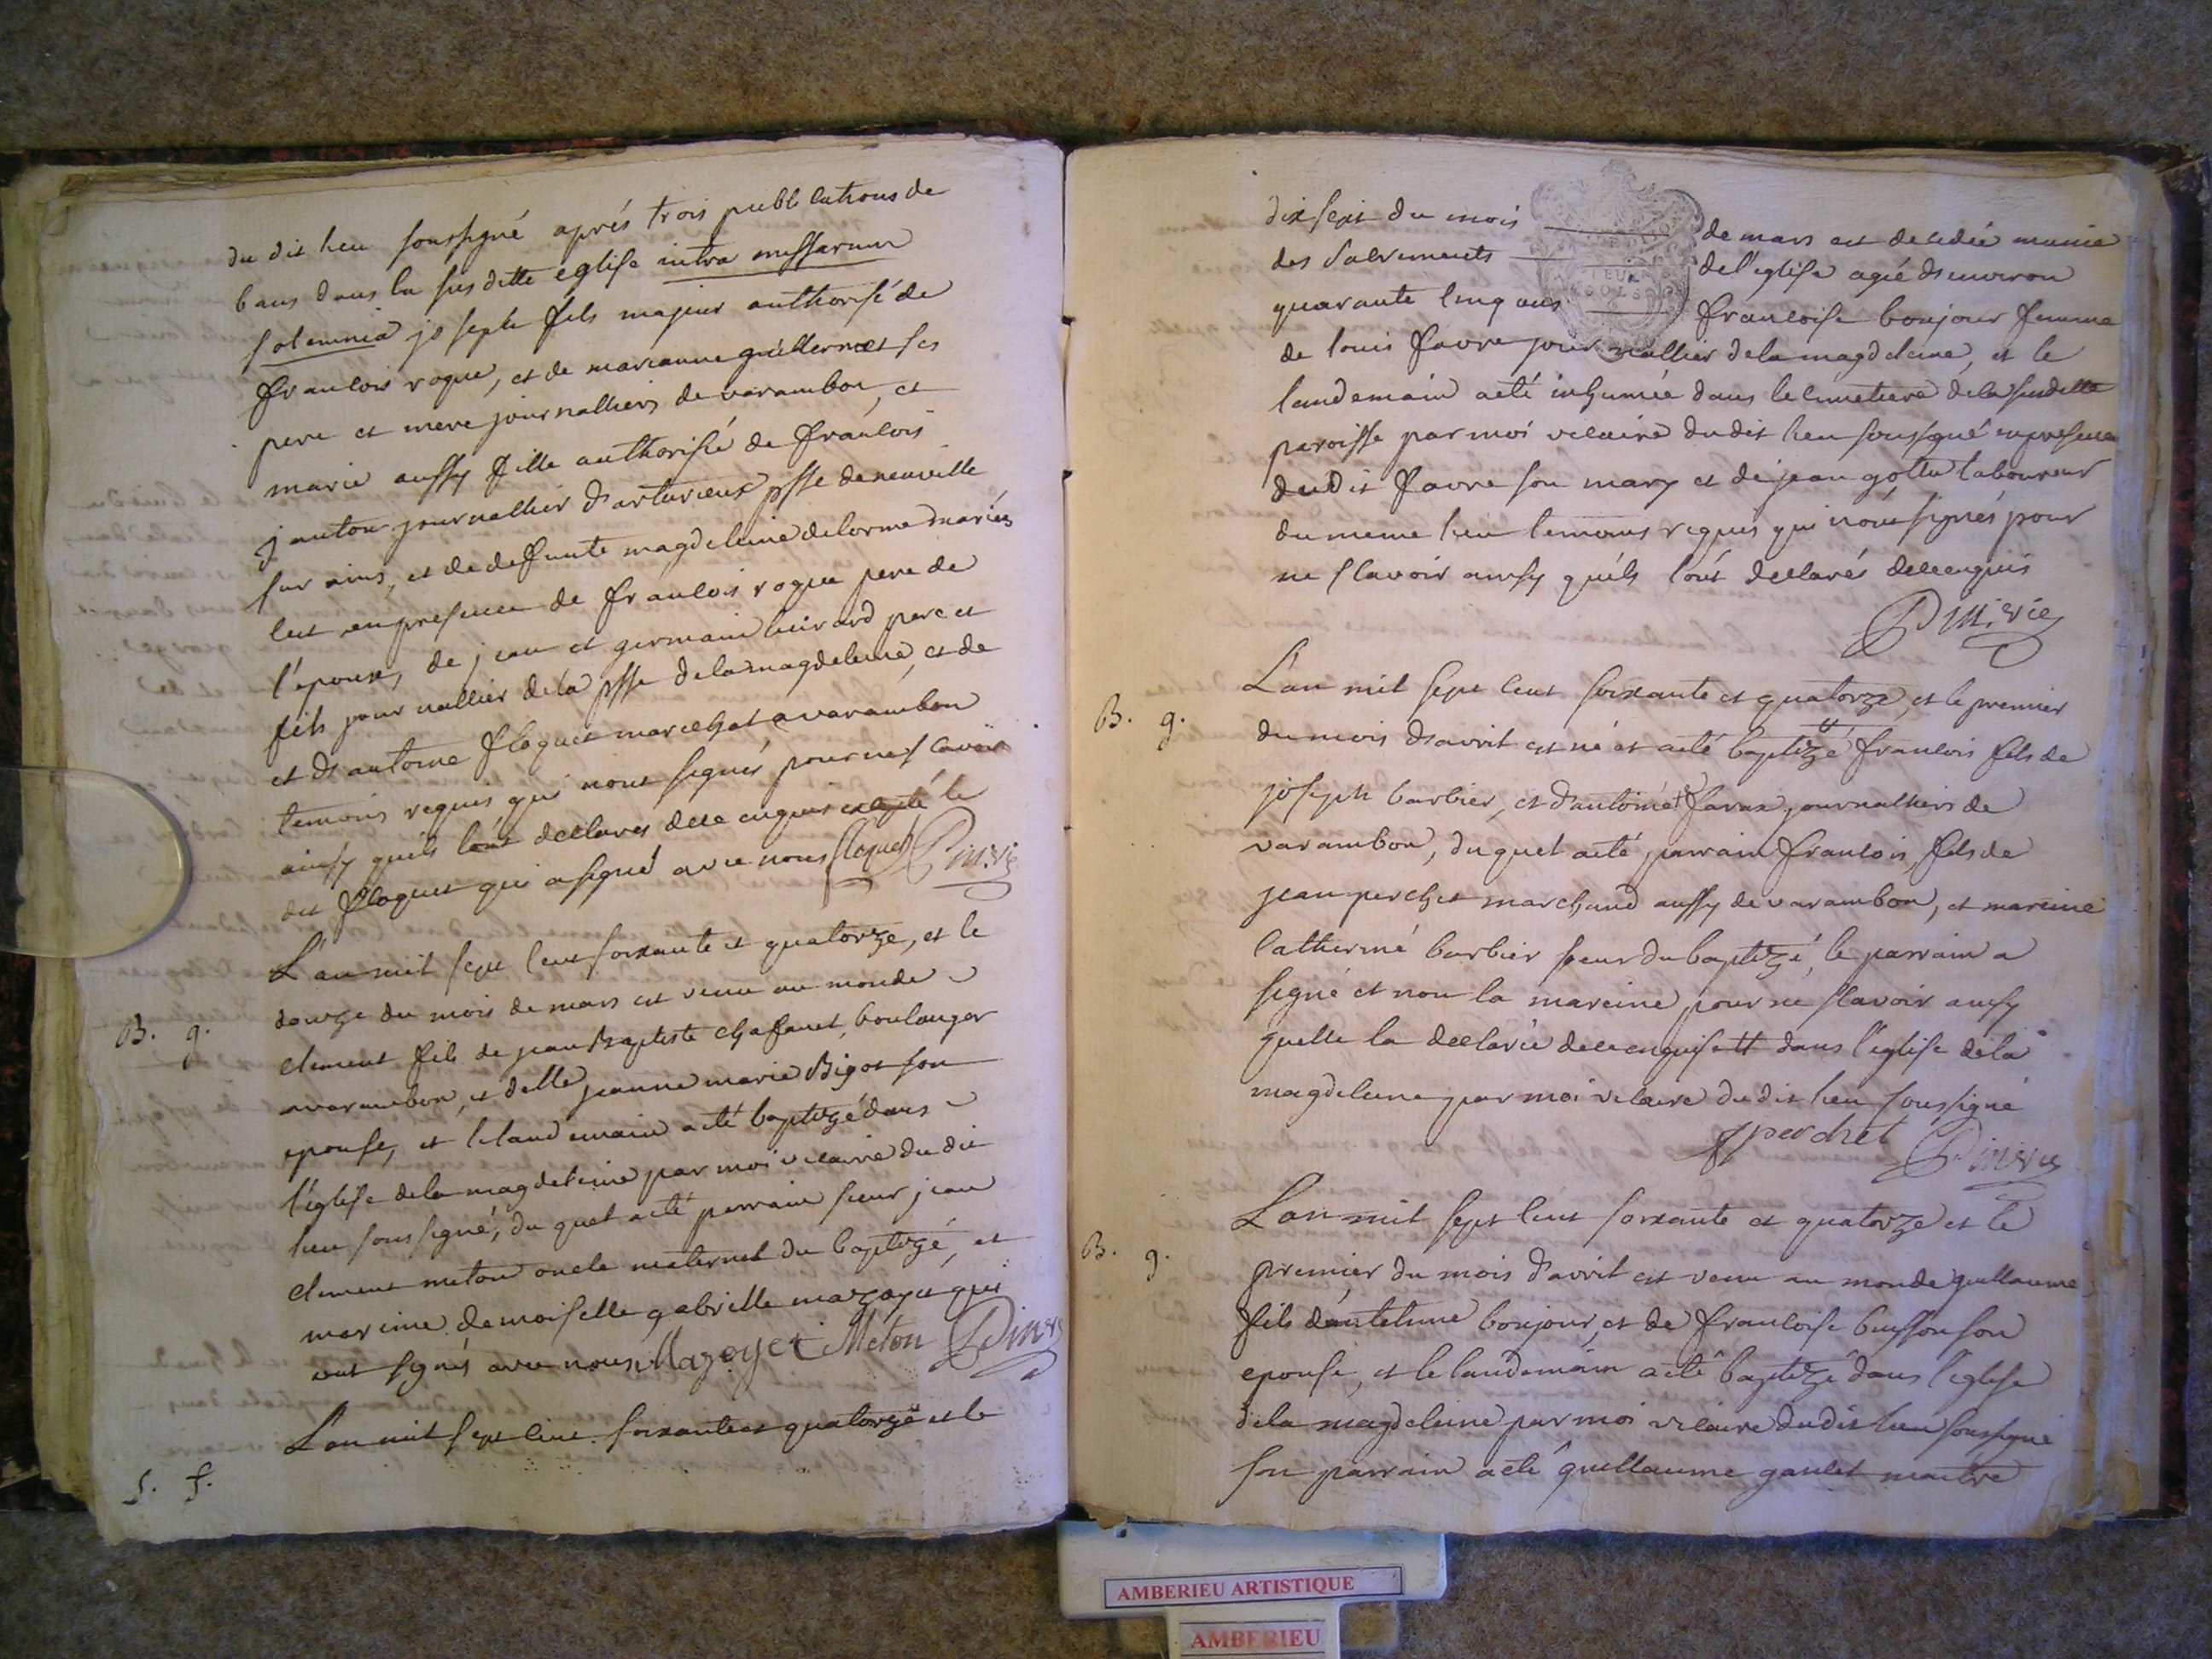 du dit lieu soussigné aprés trois publications de
bans dans la susditte eglise intra missarum
solemnia joseph fils majeur authorisé de
francois rogue, et de marianne guillermet ses
pere et mere journalliers de varambon, et
marie aussy fille authorisée de francois
janton journallier d'arturieux psse de neuville
sur ains, et de deffunte magdeleine delorme mariés
en presence de francois rogue pere de
l'epoux, de jean et germain pere et
fils journallier de la psse de la magdeleine, et de
et d'antoine floquet marechal a varambon
temoins requis qui n'ont signés pour ne scavoir
ainsy qu'ils l'ont declarés de ce enquis excepté le
dit floquet qui a signé avec nous floquet Pin. vic
L'an mil sept cent soixante et quatorze, et le
B. g. douze du mois de mars est venu au monde
clement fils de jean Baptiste chaffanet, boulanger
a varambon, et delle jeanne marie Bigot son
epouse, et le landemain a eté baptizé dans
l'eglise de la magdeleine par moi vicaire du dit
lieu soussigné, du quel a eté parrain sieur jean
clement meton oncle maternel du baptizé, et
mareine demoiselle gabrielle mazoyer qui
ont signés avec nous Mazoyer Meton Pin. vic
L'an mil sept cent soixante et quatorze et le
S. f.
dix sept du mois de mars est decedée munie
des sacrements de l'eglise agée d'environ
quarante cinq ans francoise bonjour femme
de louis favre journallier de la magdeleine, et le
landemain a eté inhumée dans le cimetiere de la susditte
paroisse par moi vicaire du dit lieu soussigné en presence
du dit favre son mary et de jean gottu laboureur
du meme lieu temoins requis qui n'ont signés pour
ne scavoir ainsy qu'ils l'ont declarés de ce enquis
Pin. vic
L'an mil sept cent soixante et quatorze, et le premier
B. g. du mois d'avril est né et a eté baptizé francois fils de
joseph barbier, et d'antoinette favre journalliers de
varambon, du quel a eté parrain francois fils de
jean perchet marchand aussy de varambon, et mareine
catherine barbier soeur du baptizé, le parrain a
signé et non la mareine pour ne scavoir ainsy
quelle la declarée de ce enquise tt dans l'eglise de la
magdeleine par moi vicaire du dit lieu soussigné
f perchet Pin. vic
L'an mil sept cent soixante et quatorze et le
B. g. premier du mois d'avril est venu au monde guillaume
fils d'antelme bonjour, et de francoise buisson son
epouse, et le landemain a eté baptizé dans l'eglise
de la magdeleine par moi vicaire du dit lieu soussigné
son parrain a eté guillaume maitre
AMBERIEU ARTISTIQUE
AMBERIEU